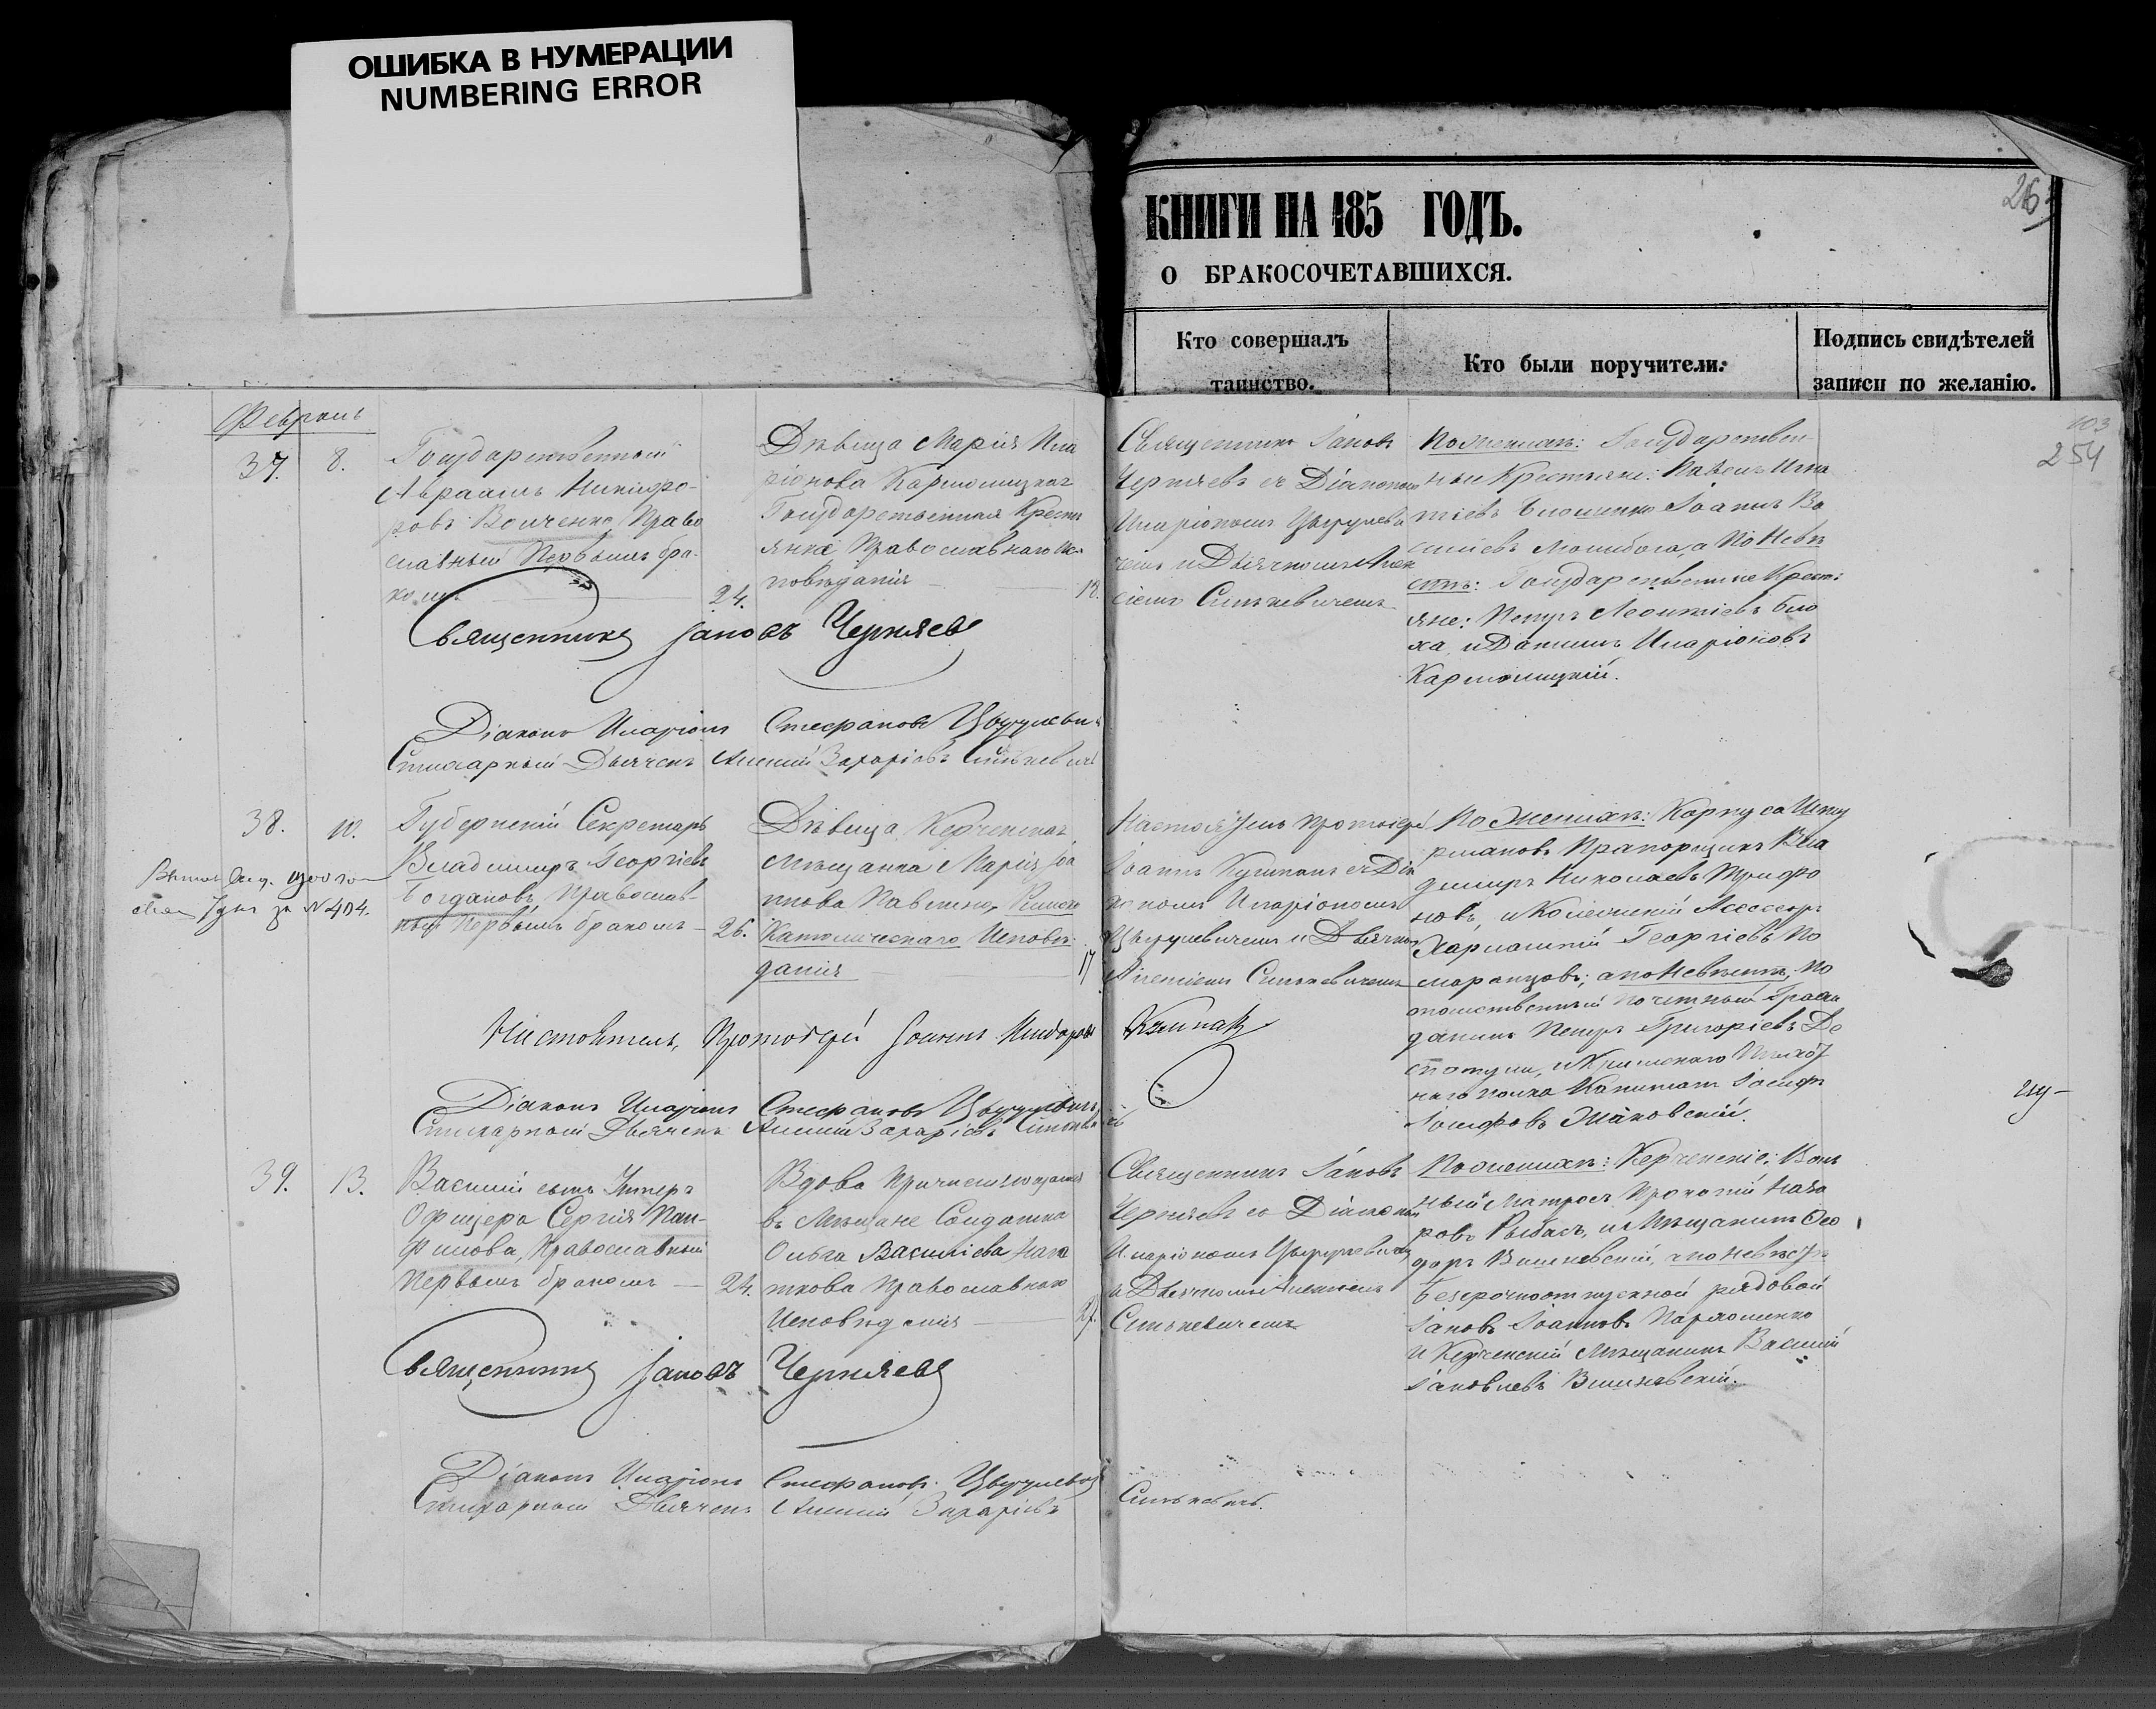 ОШИБКА В НУМЕРАЦИИ
NUMBERING ERROR
КНИГИ НА 185 ГОДЪ.
О БРАКОСОЧЕТАВШИХСЯ.
Кто совершалъ
таинство.
Кто были поручители:
Подпись свидѣтелей
записи по желанію.
103
254
Февраль
37. 8.
Государственный
Авраамъ Никифо-
ровъ Волченко, Право
славный Первымъ бра-
комъ 24.
Дѣвица Марія Ила
ріонова Кармолицкая
Государственная Кресть
янка Православнаго Ис-
повѣданія 18.
Священникъ Іаковъ
Черняевъ съ Діакономъ
Иларіономъ
чемъ и Дьячкомъ Алек
сіемъ Синькевичемъ
По Женихѣ: Государствен-
ные Крестьяне: Павелъ Игна
тіевъ Іоаннъ Ва
сильевъ а По Невѣ
стѣ: Государственные Кресть
яне: Петръ Леонтіевъ Бло
ха, и Даніилъ Иларіоновъ
Кармолицкій.
Священникъ Іаковъ Черняевъ
Діаконъ Иларіонъ Стефановъ
Стихарный Дьячекъ Алексій Захаріевъ Синькевичъ
38. 10.
за № 404.
Губернскій Секретарь
Владимиръ Георгіевъ
Богдановъ, Православ-
ный Первымъ бракомъ 26.
Дѣвица Керченская
Мѣщанка Марія Іоа
ннова Римско
Католическаго Исповѣ-
данія 17
Протоіерей
Іоаннъ Кушнакъ съ Діа
кономъ Иларіономъ
и Дьячкомъ
Алексіемъ Синькевичемъ
По Женихѣ: Корпуса Шту
рмановъ Прапорщикъ Вла
димиръ Николаевъ Трифо
новъ, и Коллежскій Ассессоръ
Харлампій Георгіевъ По
а по Невѣстѣ, По
томственный Почетный Граж
данинъ Петръ Григорьевъ Де
спотули, и Крымскаго Пѣхот
наго полка Капитанъ Іосифъ
Іосифовъ Жаковскій.
Настоятель, Протоіерей Іоаннъ Кушнакъ
Діаконъ Иларіонъ Стефановъ
Стихарный Дьячекъ Алексій Захаріевъ Синькевичъ
39. 13.
Василій сынъ Унтеръ
Офицера Сергія Пан-
филова, Православный
Первымъ бракомъ 24.
Вдова
въ Мѣщане Солдатка
Ольга Василіева
Православнаго
Исповѣданія 27.
Священникъ Іаковъ
Черняевъ съ Діакономъ
Иларіономъ
и Дьячкомъ Алексіемъ
Синькевичемъ
По женихѣ: Керченскіе: Воль
ный Матросъ Прокопій Наза
ровъ Рыбасъ, и Мѣщанинъ Ѳео
доръ Вишневскій, а по Невѣстѣ
Безсрочноотпускной рядовой
Іаковъ Іоанновъ Пархоменко
и Керченскій Мѣщанинъ Василій
Іаковлевъ Вишневскій.
Священникъ Іаковъ Черняевъ
Діаконъ Иларіонъ Стефановъ
Стихарный Дьячекъ Алексій Захаріевъ Синькевичъ.